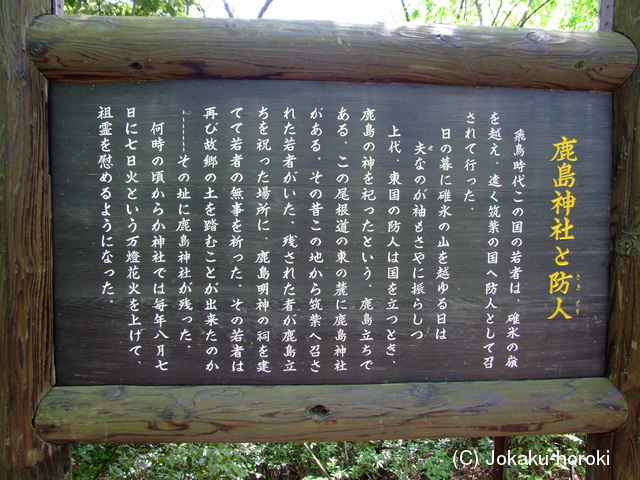 鹿島神社と防人
さき もり
飛鳥時代この国の若者は、碓氷の嶺
を越え、遠く筑紫の国へ防人として召
されて行った。
日の暮に碓氷の山を越ゆる日は
夫なのが袖もさやに振らしつ
せ
上代、東国の防人は国を立つとき、
鹿島の神を祀ったという。鹿島立ちで
ある。この尾根道の東の麓に鹿島神社
がある。その昔この地から筑紫へ召さ
れた若者がいた。残された者が鹿島立
ちを祝った場所に 鹿島明神の祠を建
てて若者の無事を祈った。その若者は
再び故郷の土を踏むことが出来たのか
┄┄┄その址に鹿島神社が残った。
何時の頃からか神社では毎年八月七
日に七日火という万燈花火を上げて、
祖霊を慰めるようになった。
(C) Jokaku-horoki